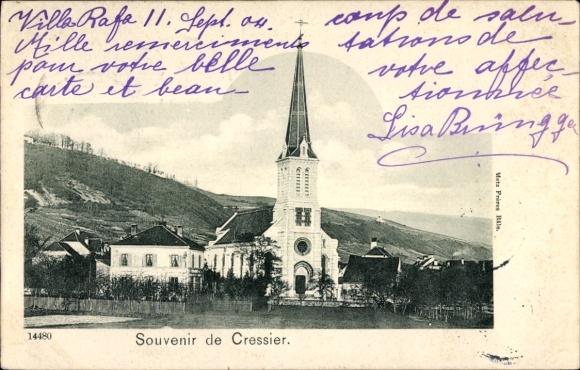 Villa Rafa 11. Sept. 04.
Mille remerciments
pour votre belle
carte et beau
coup de salu-
tations de
votre affec-
tionnée
Lisa Brüngger
Metz Frères Bâle.
14480
Souvenir de Cressier.